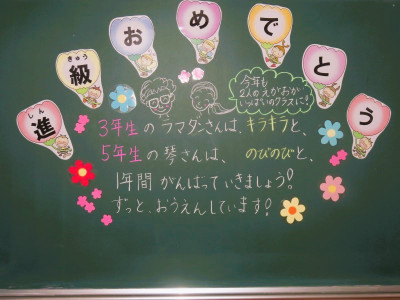 進級おめでとう
しん
きゅう
今年も
2人のえがおが
いっぱいのクラスに!
3年生のラマダンさんは、キラキラと、
5年生の琴さんは、のびのびと、
1年間がんばっていきましょう!
ずっと、おうえんしています!